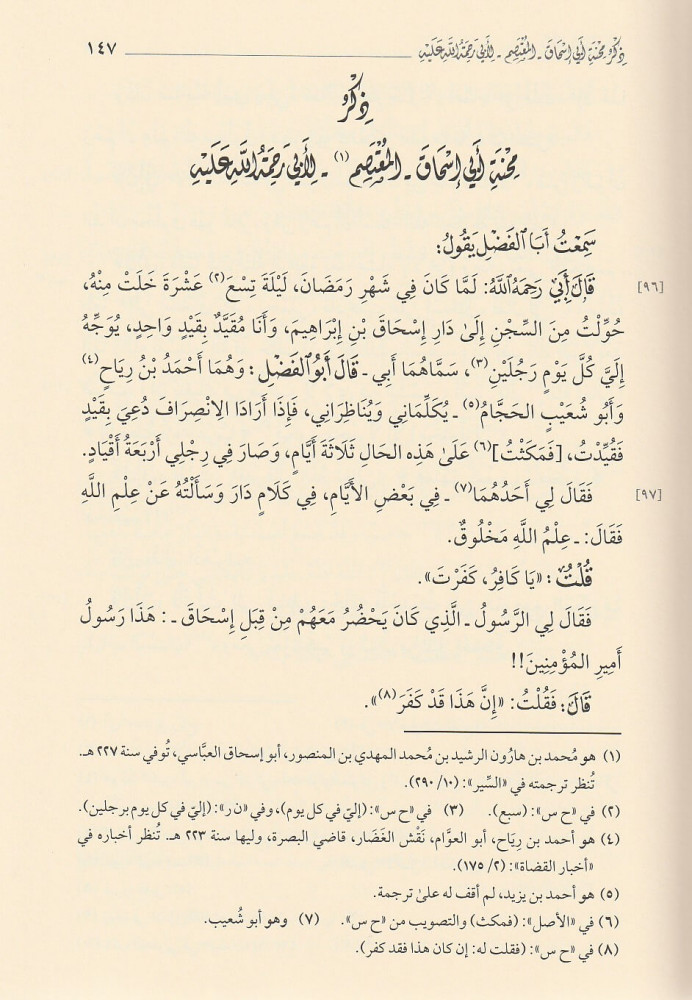 ذِكْرُ مِحْنَةِ أَبِي إِسْحَاقَ ـ المُعْتَصِمِ ـ لِأَبِي رَحِمَهُ اللَّهُ عَلَيْهِ ١٤٧
ذِكْرُ
مِحْنَةِ أَبِي إِسْحَاقَ ـ المُعْتَصِمِ (١) ـ لِأَبِي رَحِمَهُ اللَّهُ عَلَيْهِ
سَمِعْتُ أَبَا الفَضْلِ يَقُولُ:
[٩٦] قَالَ أَبِي رَحِمَهُ اللَّهُ: لَمَّا كَانَ فِي شَهْرِ رَمَضَانَ، لَيْلَةَ تِسْعَ(٢) عَشْرَةَ خَلَتْ مِنْهُ،
حُوِّلْتُ مِنَ السِّجْنِ إِلَىٰ دَارِ إِسْحَاقَ بْنِ إِبْرَاهِيمَ، وَأَنَا مُقَيَّدٌ بِقَيْدٍ وَاحِدٍ، يُوَجِّهُ
إِلَيَّ كُلَّ يَوْمٍ رَجُلَيْنِ(٣)، سَمَّاهُمَا أَبِي ـ قَالَ أَبُو الفَضْلِ: وَهُمَا أَحْمَدُ بْنُ رِيَاحٍ(٤)
وَأَبُو شُعَيْبٍ الحَجَّامُ(٥) ـ يُكَلِّمَانِي وَيُنَاظِرَانِي، فَإِذَا أَرَادَا الِانْصِرَافَ دُعِيَ بِقَيْدٍ
فَقُيِّدْتُ، [فَمَكَثْتُ](٦) عَلَىٰ هَذِهِ الحَالِ ثَلَاثَةَ أَيَّامٍ، وَصَارَ فِي رِجْلِي أَرْبَعَةُ أَقْيَادٍ.
[٩٧] فَقَالَ لِي أَحَدُهُمَا(٧) ـ فِي بَعْضِ الأَيَّامِ، فِي كَلَامٍ دَارَ وَسَأَلْتُهُ عَنْ عِلْمِ اللَّهِ
فَقَالَ: ـ عِلْمُ اللَّهِ مَخْلُوقٌ.
قُلْتُ: «يَا كَافِرُ، كَفَرْتَ».
فَقَالَ لِي الرَّسُولُ ـ الَّذِي كَانَ يَحْضُرُ مَعَهُمْ مِنْ قِبَلِ إِسْحَاقَ ـ: هَذَا رَسُولُ
أَمِيرِ المُؤْمِنِينَ!!
قَالَ: فَقُلْتُ: «إِنَّ هَذَا قَدْ كَفَرَ(٨)».
(١) هو مُحمد بن هارُون الرشيد بن مُحمد المهدي بن المنصور، أبو إسحاق العبَّاسي، تُوفي سنة ٢٢٧ هـ.
تُنظر ترجمته في «السِّير»: (١٠/ ٢٩٠).
(٢) في «ح س»: (سبع). (٣) في «ح س»: (إليّ في كل يوم)، وفي «ن ر»: (إليّ في كل يوم برجلين).
(٤) هو أحمد بن رِيَاح، أبو العوَّام، نَقْش الغَضَار، قاضِي البصرة، وليها سنة ٢٢٣ هـ. تُنظر أخباره في
«أخبار القضاة»: (٢/ ١٧٥).
(٥) هو أحمد بن يزيد، لم أقف له علىٰ ترجمة.
(٦) في «الأصل»: (فمكث) والتصويب من «ح س». (٧) وهو أبو شُعيب.
(٨) في «ح س»: (فقلت له: إن كان هذا فقد كفر).